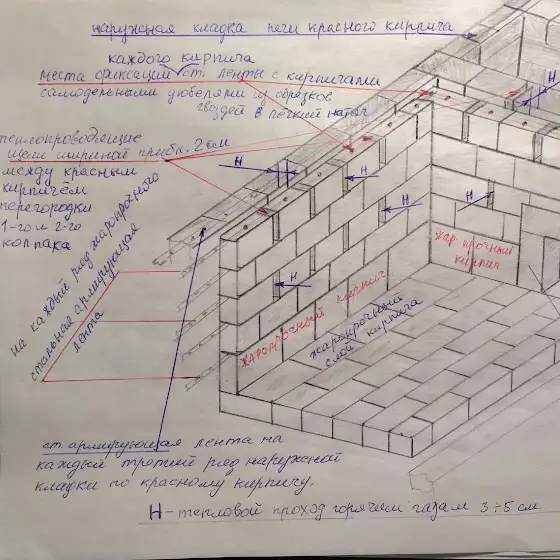 наружная кладка печи красного кирпича
каждого кирпича
места фиксации ст. ленты с кирпичами
самодельными дюбелями из обрезков
гвоздей в лёгкий натяг
теплопроводящие
щели шириной прибл. 2см
между красным
кирпичём
перегородки
1-го и 2-го
колпака
на каждый ряд жаропрочного
стальная армирующая
лента
H
H
H
H
H
H
жар. прочный
кирпич
жаропрочный кирпич
жаропрочный
слой кирпича
ст. армирующая лента на
каждый третий ряд наружной
кладки по красному кирпичу.
H - тепловой проход горячем газам 3÷5 см